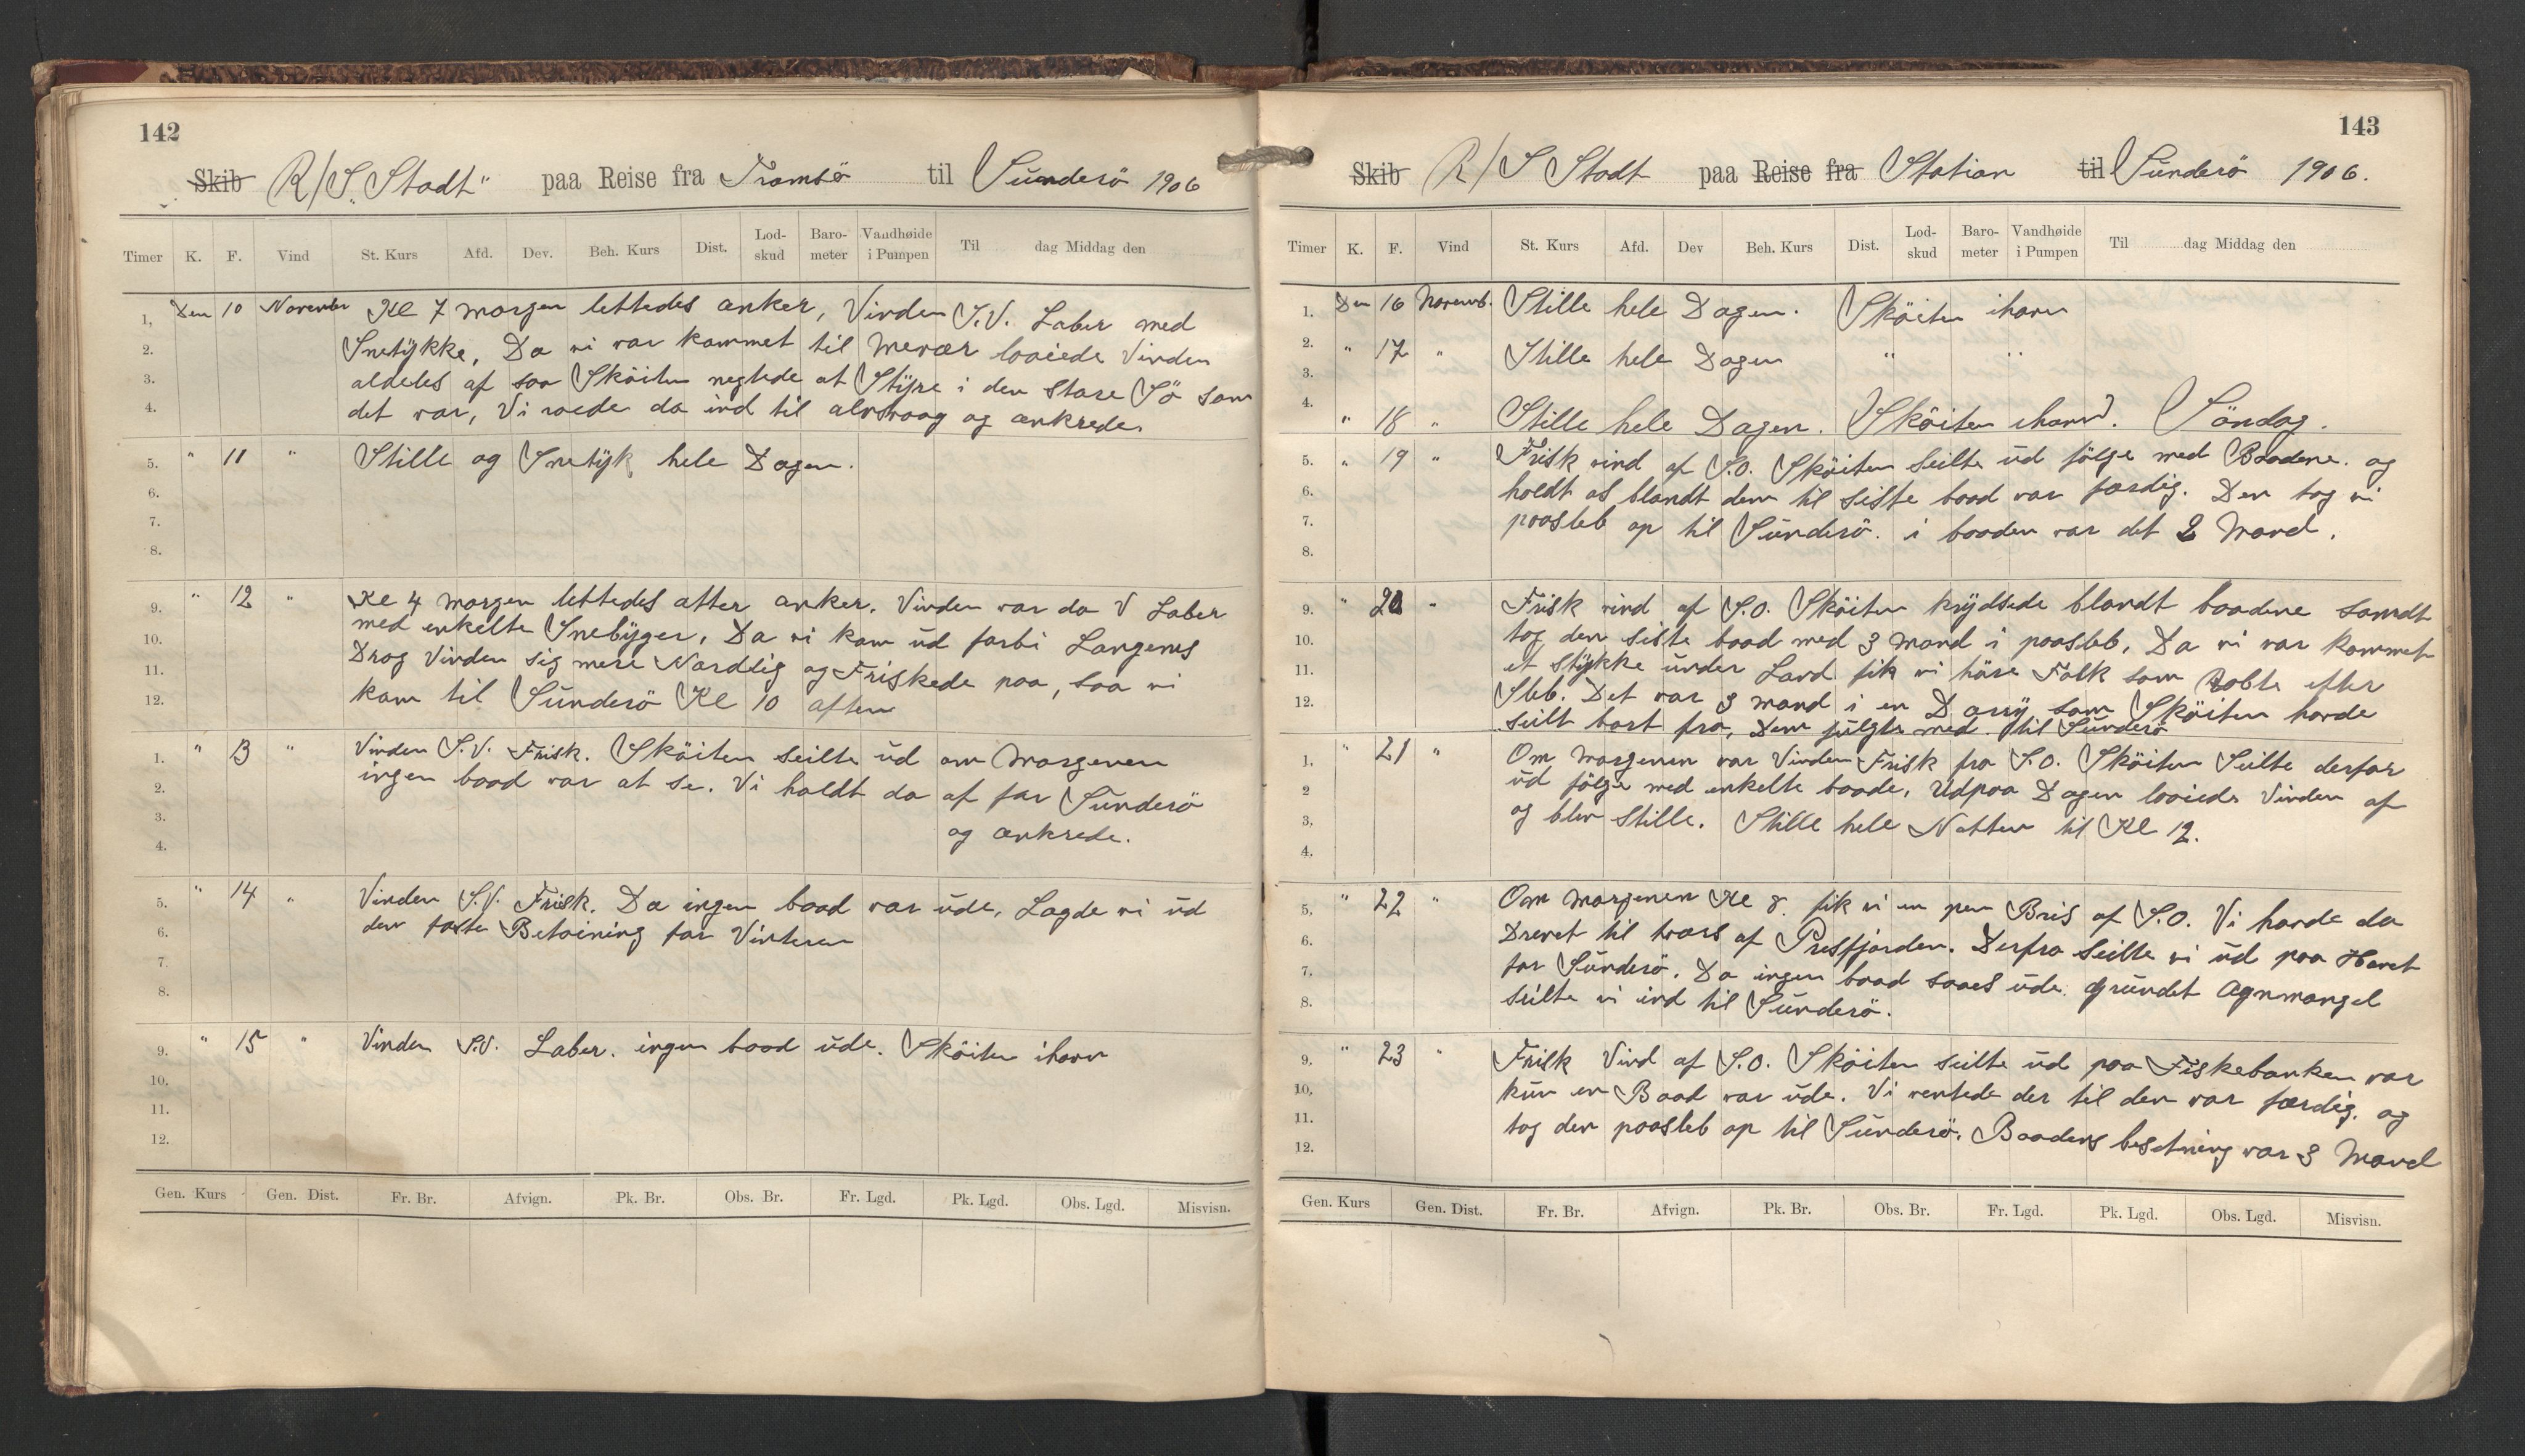 142
Skib R/S. "Stadt" paa Reise fra Tromsö til Sunderö 1906
Timer K. F. Vind St. Kurs Afd. Dev. Beh. Kurs Dist. Lod-skud Baro-meter Vandhøide i Pumpen Til dag Middag den
1. Den 10 November Kl 7 morgen lettedes anker, Vinden S.V. Laber med
2. Snetÿkke, Da vi var kommet til Mevær loaiede Vinden
3. aldeles af saa Sköiten negtede at Stÿre i den Store Sö som
4. det var, Vi roede da ind til alvsvaag og ankrede.
5. " 11 " Stille og Snetÿk hele Dagen.
6.
7.
8.
9. " 12 " Kl 4 morgen lettedes atter anker. Vinden var da V Laber
10. med enkelte Snebÿger, Da vi kom ud forbi Langenes
11. Drog Vinden sig mere Nordlig og Friskede paa, saa vi
12. kom til Sunderö Kl 10 aften
1. " 13 " Vinden S.V. Frisk. Sköiten seilte ud om Morgenen
2. ingen baad var at se. Vi holdt da af for Sunderö
3. og ankrede.
4.
5. " 14 " Vinden S.V. Frisk. Da ingen baad var ude, Lagde vi ud
6. den faste Betoining for Vinteren
7.
8.
9. " 15 " Vinden S.V. Laber. ingen baad ude. Sköiten ihavn
10.
11.
12.
Gen. Kurs Gen. Dist. Fr. Br. Afvign. Pk. Br. Obs. Br. Fr. Lgd. Pk. Lgd. Obs. Lgd. Misvisn.
143
Skib R/S Stadt paa Reise fra Station til Sunderö 1906.
Timer K. F. Vind St. Kurs Afd. Dev Beh. Kurs Dist. Lod-skud Baro-meter Vandhøide i Pumpen Til dag Middag den
1. Den 16 Novemb. Stille hele Dagen. Sköiten ihavn
2. " 17 " Stille hele Dagen " "
3.
4. " 18 " Stille hele Dagen. Sköiten ihavn. Söndag.
5. " 19 " Frisk vind af S.O. Sköiten Seilte ud fölge med Baadene. og
6. holdt os blandt dem til Siste baad var færdig. Den tog vi
7. paasleb op til Sunderö. i baaden var det 2 Mand.
8.
9. " 20 " Frisk vind af S.O. Sköiten krÿdsede blandt baadene samdt
10. tog den siste baad med 3 mand i paasleb, Da vi var kommet
11. et stÿkke under Land fik vi höre Folk som Robte efter
12. Sleb. Det var 3 mand i en Dorrÿ som Sköiten havde
seilt bort fra, Dem fulgte med til Sunderö
1. " 21 " Om morgenen var Vinden Frisk fra S.O. Sköiten Seilte derfor
2 ud fölge med enkelte baade, Udpaa Dagen loaiede Vinden af
3. og blev Stille. Stille hele Natten til Kl 12.
4.
5. " 22 " Om morgenen Kl 8. fik vi en pen Bris af S.O. Vi havde da
6. Drevet til tværs af Presfjorden. Derfra Seilte vi ud paa Havet
7. for Sunderö. Da ingen baad saaes ude. Grundet Agnmangel
8. seilte vi ind til Sunderö.
9. " 23 " Frisk Vind af S.O. Sköiten seilte ud paa Fiskebanken var
10. kun en Baad var ude. Vi ventede der til den var færdig. og
11. tog den paasleb op til Sunderö. Baadens besetning var 3 Mand
12.
Gen. Kurs Gen. Dist. Fr. Br. Afvign. Pk. Br. Obs. Br. Fr. Lgd. Pk. Lgd. Obs. Lgd. Misvisn.